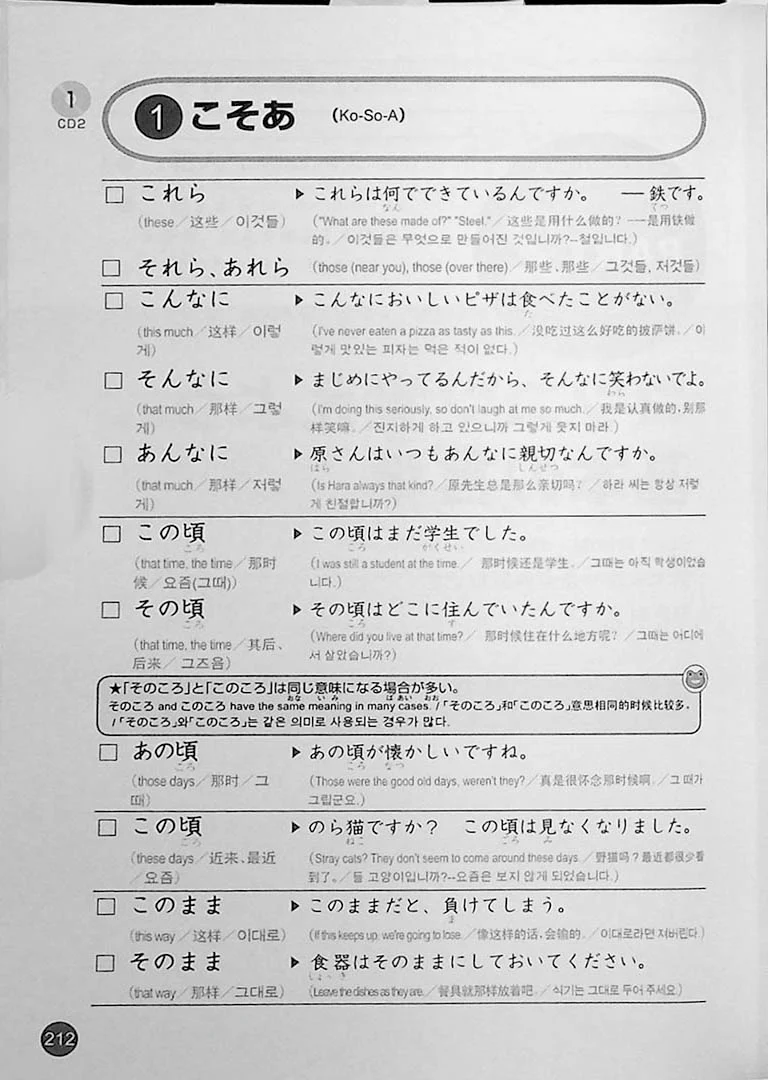 1
CD2
1 こそあ (Ko-So-A)
□ これら
(these／这些／이것들)
▶ これらは何でできているんですか。 ―鉄です。
なん てつ
("What are these made of?" "Steel."／这些是用什么做的？――是用铁做
的。／이것들은 무엇으로 만들어진 것입니까?--철입니다.)
□ それら、あれら
(those (near you), those (over there)／那些、那些／그것들, 저것들)
□ こんなに
(this much／这样／이렇
게)
▶ こんなにおいしいピザは食べたことがない。
た
(I've never eaten a pizza as tasty as this.／没吃过这么好吃的披萨饼。／이
렇게 맛있는 피자는 먹은 적이 없다.)
□ そんなに
(that much／那样／그렇
게)
▶ まじめにやってるんだから、そんなに笑わないでよ。
わら
(I'm doing this seriously, so don't laugh at me so much.／我是认真做的，别那
样笑嘛。／진지하게 하고 있으니까 그렇게 웃지 마라.)
□ あんなに
(that much／那样／저렇
게)
▶ 原さんはいつもあんなに親切なんですか。
はら しんせつ
(Is Hara always that kind?／原先生总是那么亲切吗？／하라 씨는 항상 저렇
게 친절합니까?)
□ この頃
ころ
(that time, the time／那时
候／요즘(그때))
▶ この頃はまだ学生でした。
ころ がくせい
(I was still a student at the time.／ 那时候还是学生。／그때는 아직 학생이었습
니다.)
□ その頃
ころ
(that time, the time／其后、
后来／ 그즈음)
▶ その頃はどこに住んでいたんですか。
ころ す
(Where did you live at that time?／ 那时候住在什么地方呢？／그때는 어디에
서 살았습니까?)
★「そのころ」と「このころ」は同じ意味になる場合が多い。
おな い み ば あい おお
そのころ and このころ have the same meaning in many cases.／「そのころ」和「このころ」意思相同的时候比较多。
／「そのころ」와「このころ」는 같은 의미로 사용되는 경우가 많다.
□ あの頃
ころ
(those days／那时／그
때)
▶ あの頃が懐かしいですね。
ころ なつ
(Those were the good old days, weren't they?／真是很怀念那时候啊。／그 때가
그립군요.)
□ この頃
ごろ
(these days／近来、最近
／요즘)
▶ のら猫ですか？ この頃は見なくなりました。
ねこ ごろ み
(Stray cats? They don't seem to come around these days.／野猫吗？最近都很少看
到了。／들 고양이입니까?--요즘은 보지 않게 되었습니다.)
□ このまま
(this way／这样／이대로)
▶ このままだと、負けてしまう。
ま
(If this keeps up, we're going to lose.／像这样的话，会输的。／이대로라면 져버린다.)
□ そのまま
(that way／那样／그대로)
▶ 食器はそのままにしておいてください。
しょっき
(Leave the dishes as they are.／餐具就那样放着吧。／식기는 그대로 두어 주세요.)
212